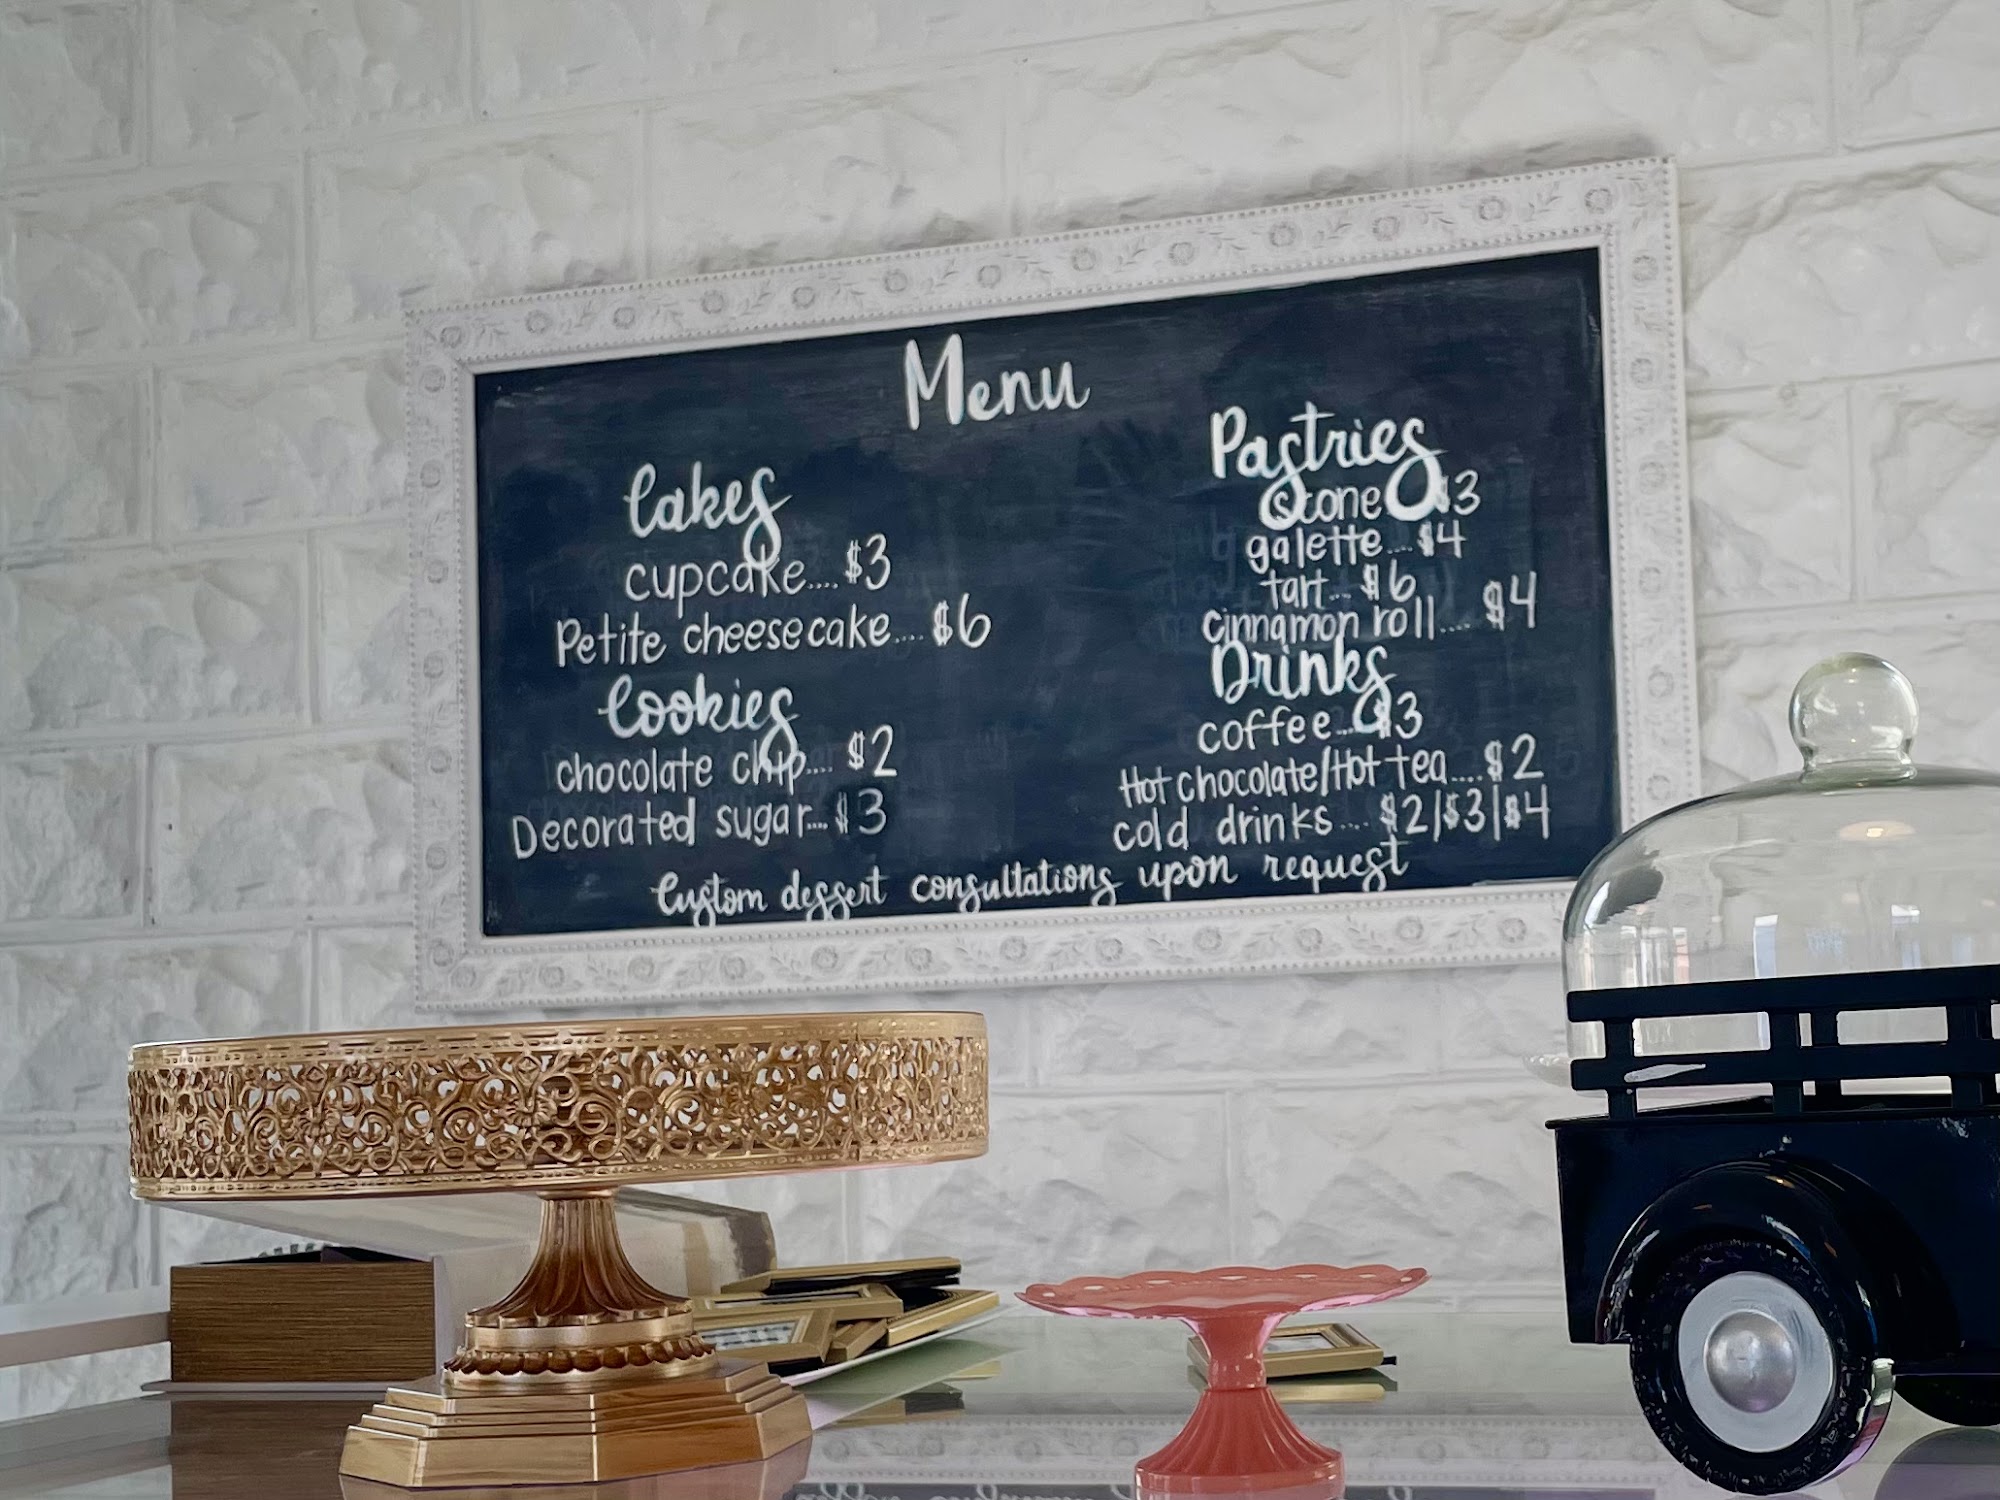 Menu
Cakes
cupcake.... $3
Petite cheesecake.... $6
Cookies
chocolate chip.... $2
Decorated sugar.... $3
Pastries
scone $3
galette.... $4
tart... $6
cinnamon roll.... $4
Drinks
coffee... $3
Hot chocolate/Hot tea.... $2
cold drinks.... $2|$3|$4
Custom dessert consultations upon request